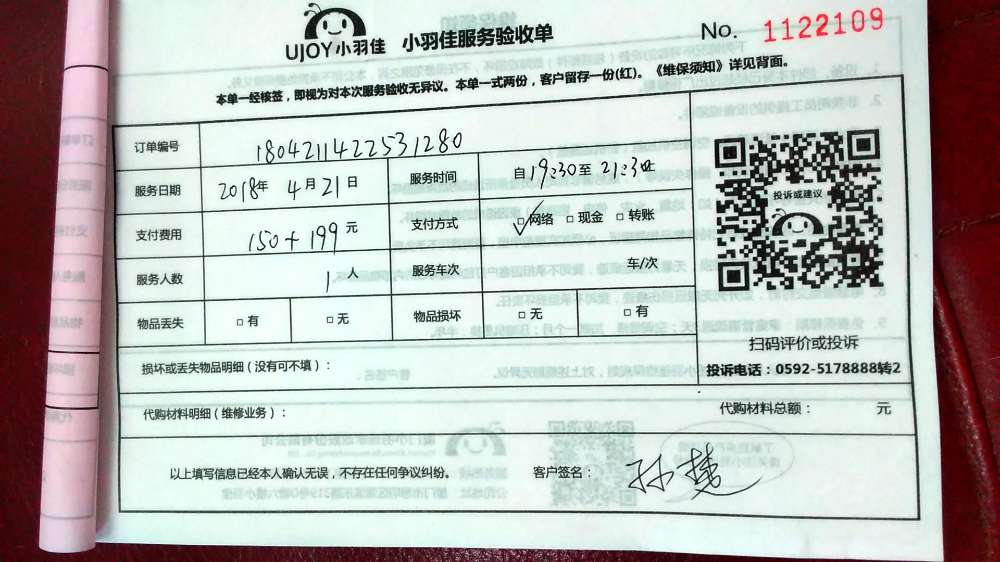 UJOY小羽佳 小羽佳服务验收单 No. 1122109
本单一经核签，即视为对本次服务验收无异议。本单一式两份，客户留存一份(红)。《维保须知》详见背面。
订单编号 1804211422531280
服务日期 2018年 4月21日 服务时间 自19:30至21:30止
支付费用 150+199元 支付方式 □网络 □现金 □转账
服务人数 1人 服务车次 车/次
物品丢失 □有 □无 物品损坏 □无 □有
损坏或丢失物品明细（没有可不填）：
代购材料明细（维修业务）： 代购材料总额： 元
以上填写信息已经本人确认无误，不存在任何争议纠纷。 客户签名：
投诉或建议
扫码评价或投诉
投诉电话：0592-5178888转2